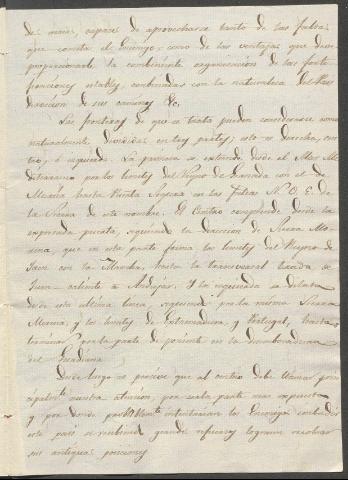 de mas, capaz de aprovecharse tanto de las faltas
que cometa el Enemigo, como de las ventajas que deve
proporcionarle la combinente organizacion de las forti-
ficaciones establ.s combinadas con la naturaleza del Pais
direccion de sus caminos &c.
Las fronteras de que se trata pueden considerarse como
naturalmente divididas en tres partes; esto es derecha, cen
tro, é izquierda. La primera se extiende desde el Mar Me
diterraneo por los limites del Reyno de Granada con el de
Murcia hasta Punta en las faldas N. O. E. de
la Sierra de este nombre. El Centro comprende desde la
expresada punta, siguiendo la direccion de Sierra Mo
rena, que en esta parte forma los limites del Reyno de
Jaen con la Mancha, hasta la transversal tirada de
caliente a Andujar. Y la izquierda se dilata
desde esta ultima linea, siguiendo por la misma Sierra
Morena, y los limites de Extremadura, y Portugal, hasta
terminar por la parte de poniente en la desembocadura
del Guadiana.
Desde luego se percive que al centro debe llamar prin
cipalm.te nuestra atencion, por ser la parte mas expuesta
y por donde probablem.te intentarian los Enemigos
este pais si recibiendo grandes refuerzos lograsen recobrar
sus antiguas posiciones